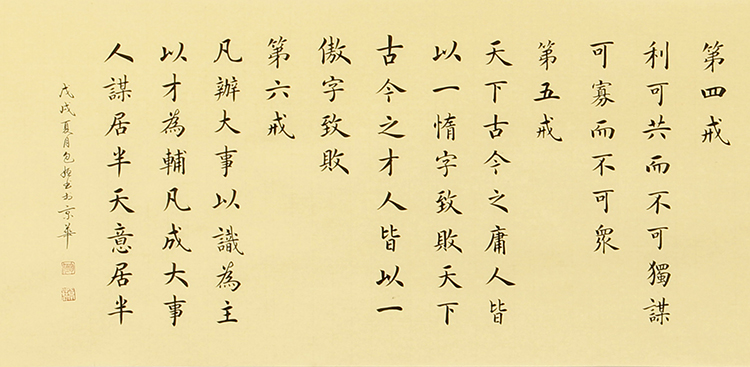 第四戒
利可共而不可獨謀
可寡而不可眾
第五戒
天下古今之庸人皆
以一惰字致敗天下
古今之才人皆以一
傲字致敗
第六戒
凡辦大事以識為主
以才為輔凡成大事
人謀居半天意居半
戊戌夏月包 書於京華